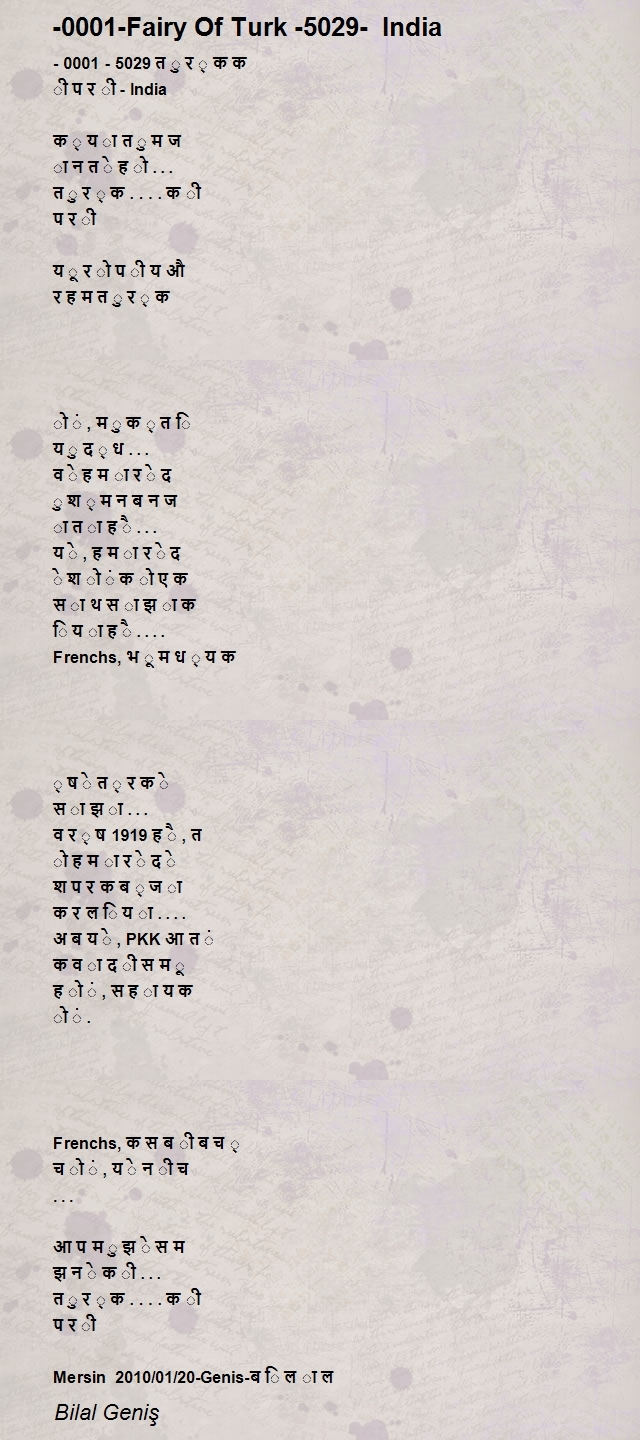 -0001-Fairy Of Turk -5029-  India
- 0001 - 5029 त ु र ् क क
ी प र ी - India
क ् य ा त ु म ज
ा न त े ह ो . . .
त ु र ् क . . . . क ी
प र ी
य ू र ो प ी य औ
र ह म त ु र ् क
ो ं , म ु क ् त ि
य ु द ् ध . . .
व े ह म ा र े द
ु श ् म न ब न ज
ा त ा ह ै . . .
य े , ह म ा र े द
े श ो ं क ो ए क
स ा थ स ा झ ा क
ि य ा ह ै . . . .
Frenchs, भ ू म ध ् य क
् ष े त ् र क े
स ा झ ा . . .
व र ् ष 1919 ह ै , त
ो ह म ा र े द े
श प र क ब ् ज ा
क र ल ि य ा . . . .
अ ब य े , PKK आ त ं
क व ा द ी स म ू
ह ो ं , स ह ा य क
ो ं .
Frenchs, क स ब ी ब च ्
च ो ं , य े न ी च
. . .
आ प म ु झ े स म
झ न े क ी . . .
त ु र ् क . . . . क ी
प र ी
Mersin  2010/01/20-Genis-ब ि ल ा ल
Bilal Geniş